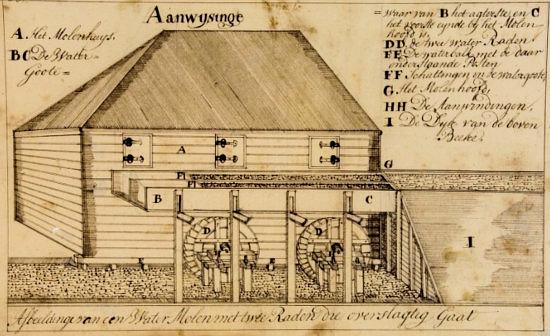 Aanwysinge
A. Het Molenhuys,
BC De Water-
Goote =
= waar van B het agterste, en C
het voorste eynde by het Molen
hoofd is,
DD de twee Water Raden
EE De waterbalk met de daar
onderstaande Posten
FF Schuttingen en de
G Het Molenhoofd,
HH De Aanwindingen,
I De Dyk van de boven
Beeke.
A
G
F
F
B
C
D
D
I
E
E
Afbeeldinge van een Water Molen met twee Raden die overslagtig Gaat